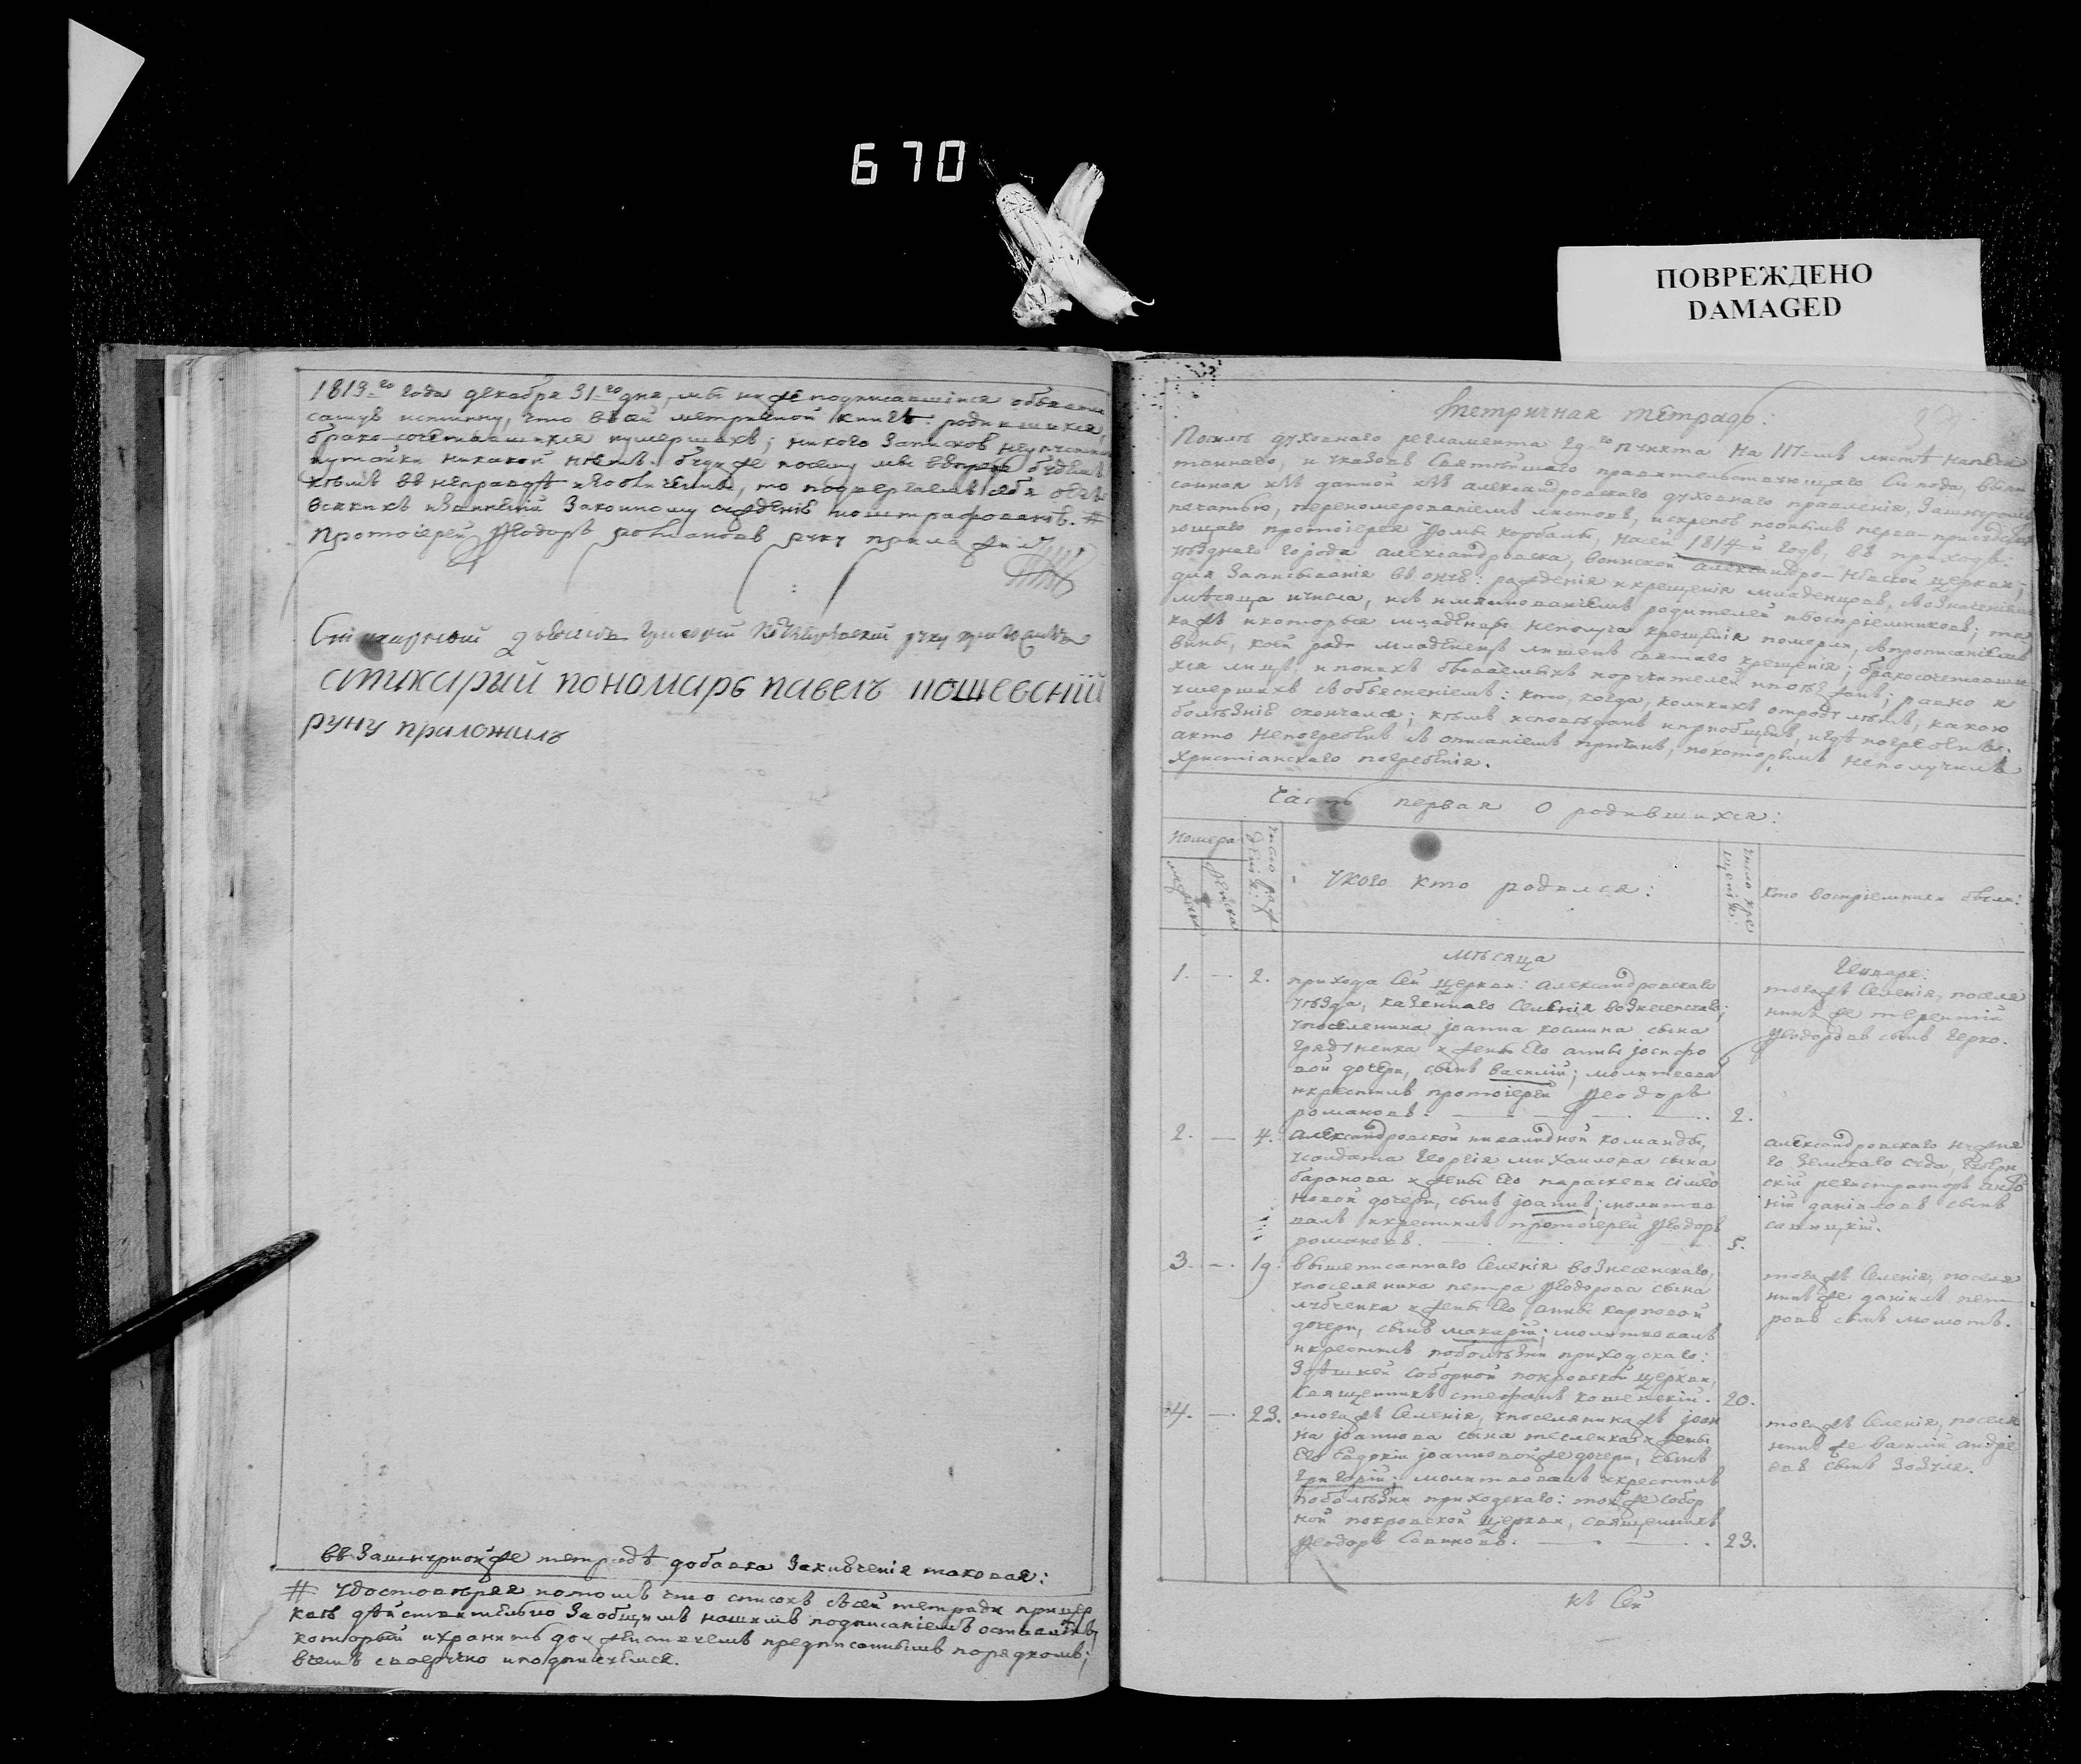 670
ПОВРЕЖДЕНО
DAMAGED
1813-го года декабря 31-го дня, мы нижеподписавшіися объявляем
самую истинну, что въ сей метричной книгѣ: родившихся,
брако-сочетавшихся иумершихъ; никого записков неупущенно
иутайки никакой нѣтъ. будеже посему мы впредь будемъ
кѣмъ въ неправдѣ изобличены, то подвергаемъ себя
всякихъ законному сужденію иоштрафованію. #
Протоіерей Ѳеодоръ романовъ руку приложилъ
Стихарный Григорій руку приложилъ
стихарый пономарь павелъ пошевскій
руку приложилъ
въ Зашнурнойже тетрадѣ добавка Заключенія таковая:
# удостовѣряя потомъ что списокъ сьей тетради при цер
квѣ дѣйствительно За общимъ нашимъ подписаніемъ оставленъ
который ихранить предписаннымъ порядкомъ;
въчемъ своеручно иподпишемся.
Метричная тетрадь:
Посилѣ духовнаго регламента 29-го пункта на 117-мъ листѣ напеча
таннаго, и указовъ Святѣйшаго правительствующаго Синода,
данной изъ александровскаго духовнаго правленія, Зашнуромъ
печатью, перенумерованіемъ листовъ, искрепою поонымъ перво-присудству
ющаго протоіерея Ѳомы корбаны, насей 1814-й годъ, въ приходѣ:
уѣзднаго города александровска, воинской александро-Невской церкви;
для Записыванія въ онѣ: рожденія икрещенія младенцовъ, собозначеніемъ
мѣсяца ичисла, исъ имянованіемъ родителей ивоспріемниковъ; та
кожъ икоторые младенцы неполуча крещенія померли, спрописаніемъ
вины, коей ради младенецъ лишенъ святаго крещенія; бракосочетавши
хся лицъ, ипонихъ бываемыхъ поручителей ипоѣзжанъ; равно и
умершихъ собъясненіемъ: кто, когда, коликихъ отроду лѣтъ, какою
болѣзнію скончался; кѣмъ исповѣданъ ипріобщенъ, игдѣ погребенъ.
акто непогребенъ съ описаніемъ причинъ, покоторымъ неполучилъ
Христіанскаго погребенія.
Часть первая О родившихся:
Номера
число рож
денія:
мужска
женска
Укого кто родился:
число кре
щенія:
Кто воспріемники были:
мѣсяца
Генваря:
1. — 2. прихода Сей церкви: Александровскаго
уѣзда, казеннаго Селенія вознесенскаго;
упоселянина іоанна космина сына
грядуненка ижены Его анны іосифо
вой дочери, сынъ василій; молитвова
икрестилъ протоіерей Ѳеодоръ
романовъ. 2.
тогожъ Селенія, поселя
нинъ же терентій
Ѳеодоровъ сынъ Герко.
2. — 4. Александровской инвалидной команды,
усолдата Георгія михайлова сына
баранова ижены Его параскеви сімео
новой дочери, сынъ іоаннъ; молитво
валъ икрестилъ протоіерей Ѳеодоръ
романовъ. 5.
Александровскаго нижня
го Земскаго суда, Губерн
скій регистраторъ анто
ній даніиловъ сынъ
савицкій.
3. — 19. вышеписаннаго Селенія вознесенскаго,
упоселянина петра Ѳеодорова сына
лубченка ижены Его анны карповой
дочери, сынъ макарій; молитвовалъ
икрестилъ поболѣзни приходскаго:
Здѣшней Соборной покровской церкви,
Священникъ стефанъ кошевскій. 20.
тогожъ Селенія, поселя
нинъ же даніилъ пет
ровъ сынъ момотъ.
4. — 23. тогожъ Селенія, упоселянинажъ іоан
на іоаннова сына тесленка ижены
Его Евдокіи іоанновойже дочери, сынъ
Григорій; молитвовалъ икрестилъ
поболѣзни приходскаго: тойже собор
ной покровской церкви, священникъ
Ѳеодоръ Савиновъ. 23.
тогожъ Селенія, поселя
нинъ же василій андре
евъ сынъ Зозуля.
къ Сей